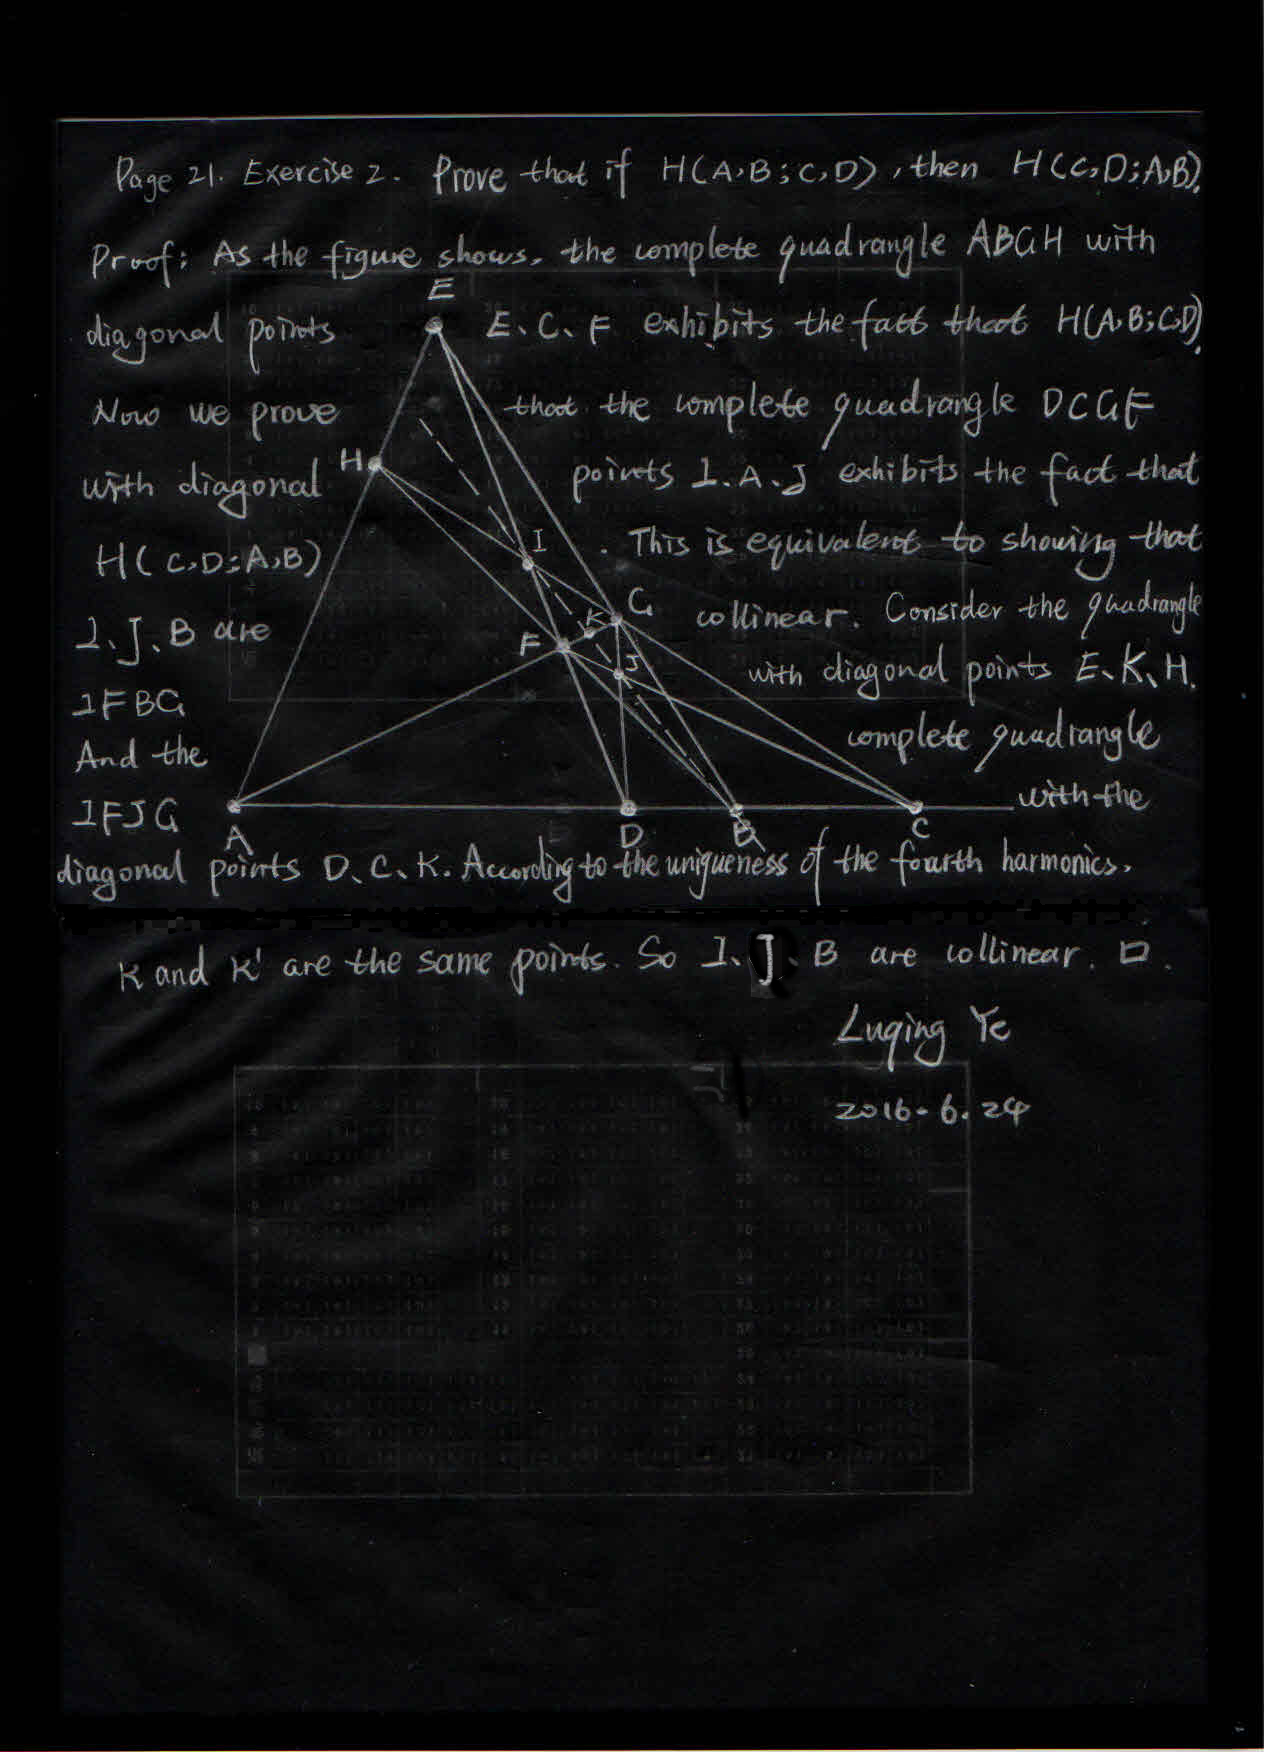 Page 21. Exercise 2. Prove that if H(A,B;C,D), then H(C,D;A,B).
Proof: As the figure shows, the complete quadrangle ABGH with
E
diagonal points E、C、F exhibits the fact that H(A,B;C,D).
Now we prove that the complete quadrangle DCGF
H
with diagonal points I.A.J exhibits the fact that
I
H(C,D;A,B). This is equivalent to showing that
G
K
I.J.B are collinear. Consider the quadrangle
F
J
IFBG with diagonal points E、K、H.
And the complete quadrangle
IFJG with the
A D B C
diagonal points D、C、K. According to the uniqueness of the fourth harmonics,
K and K' are the same points. So I、J、B are collinear. □.
Luqing Ye
2016.6.24